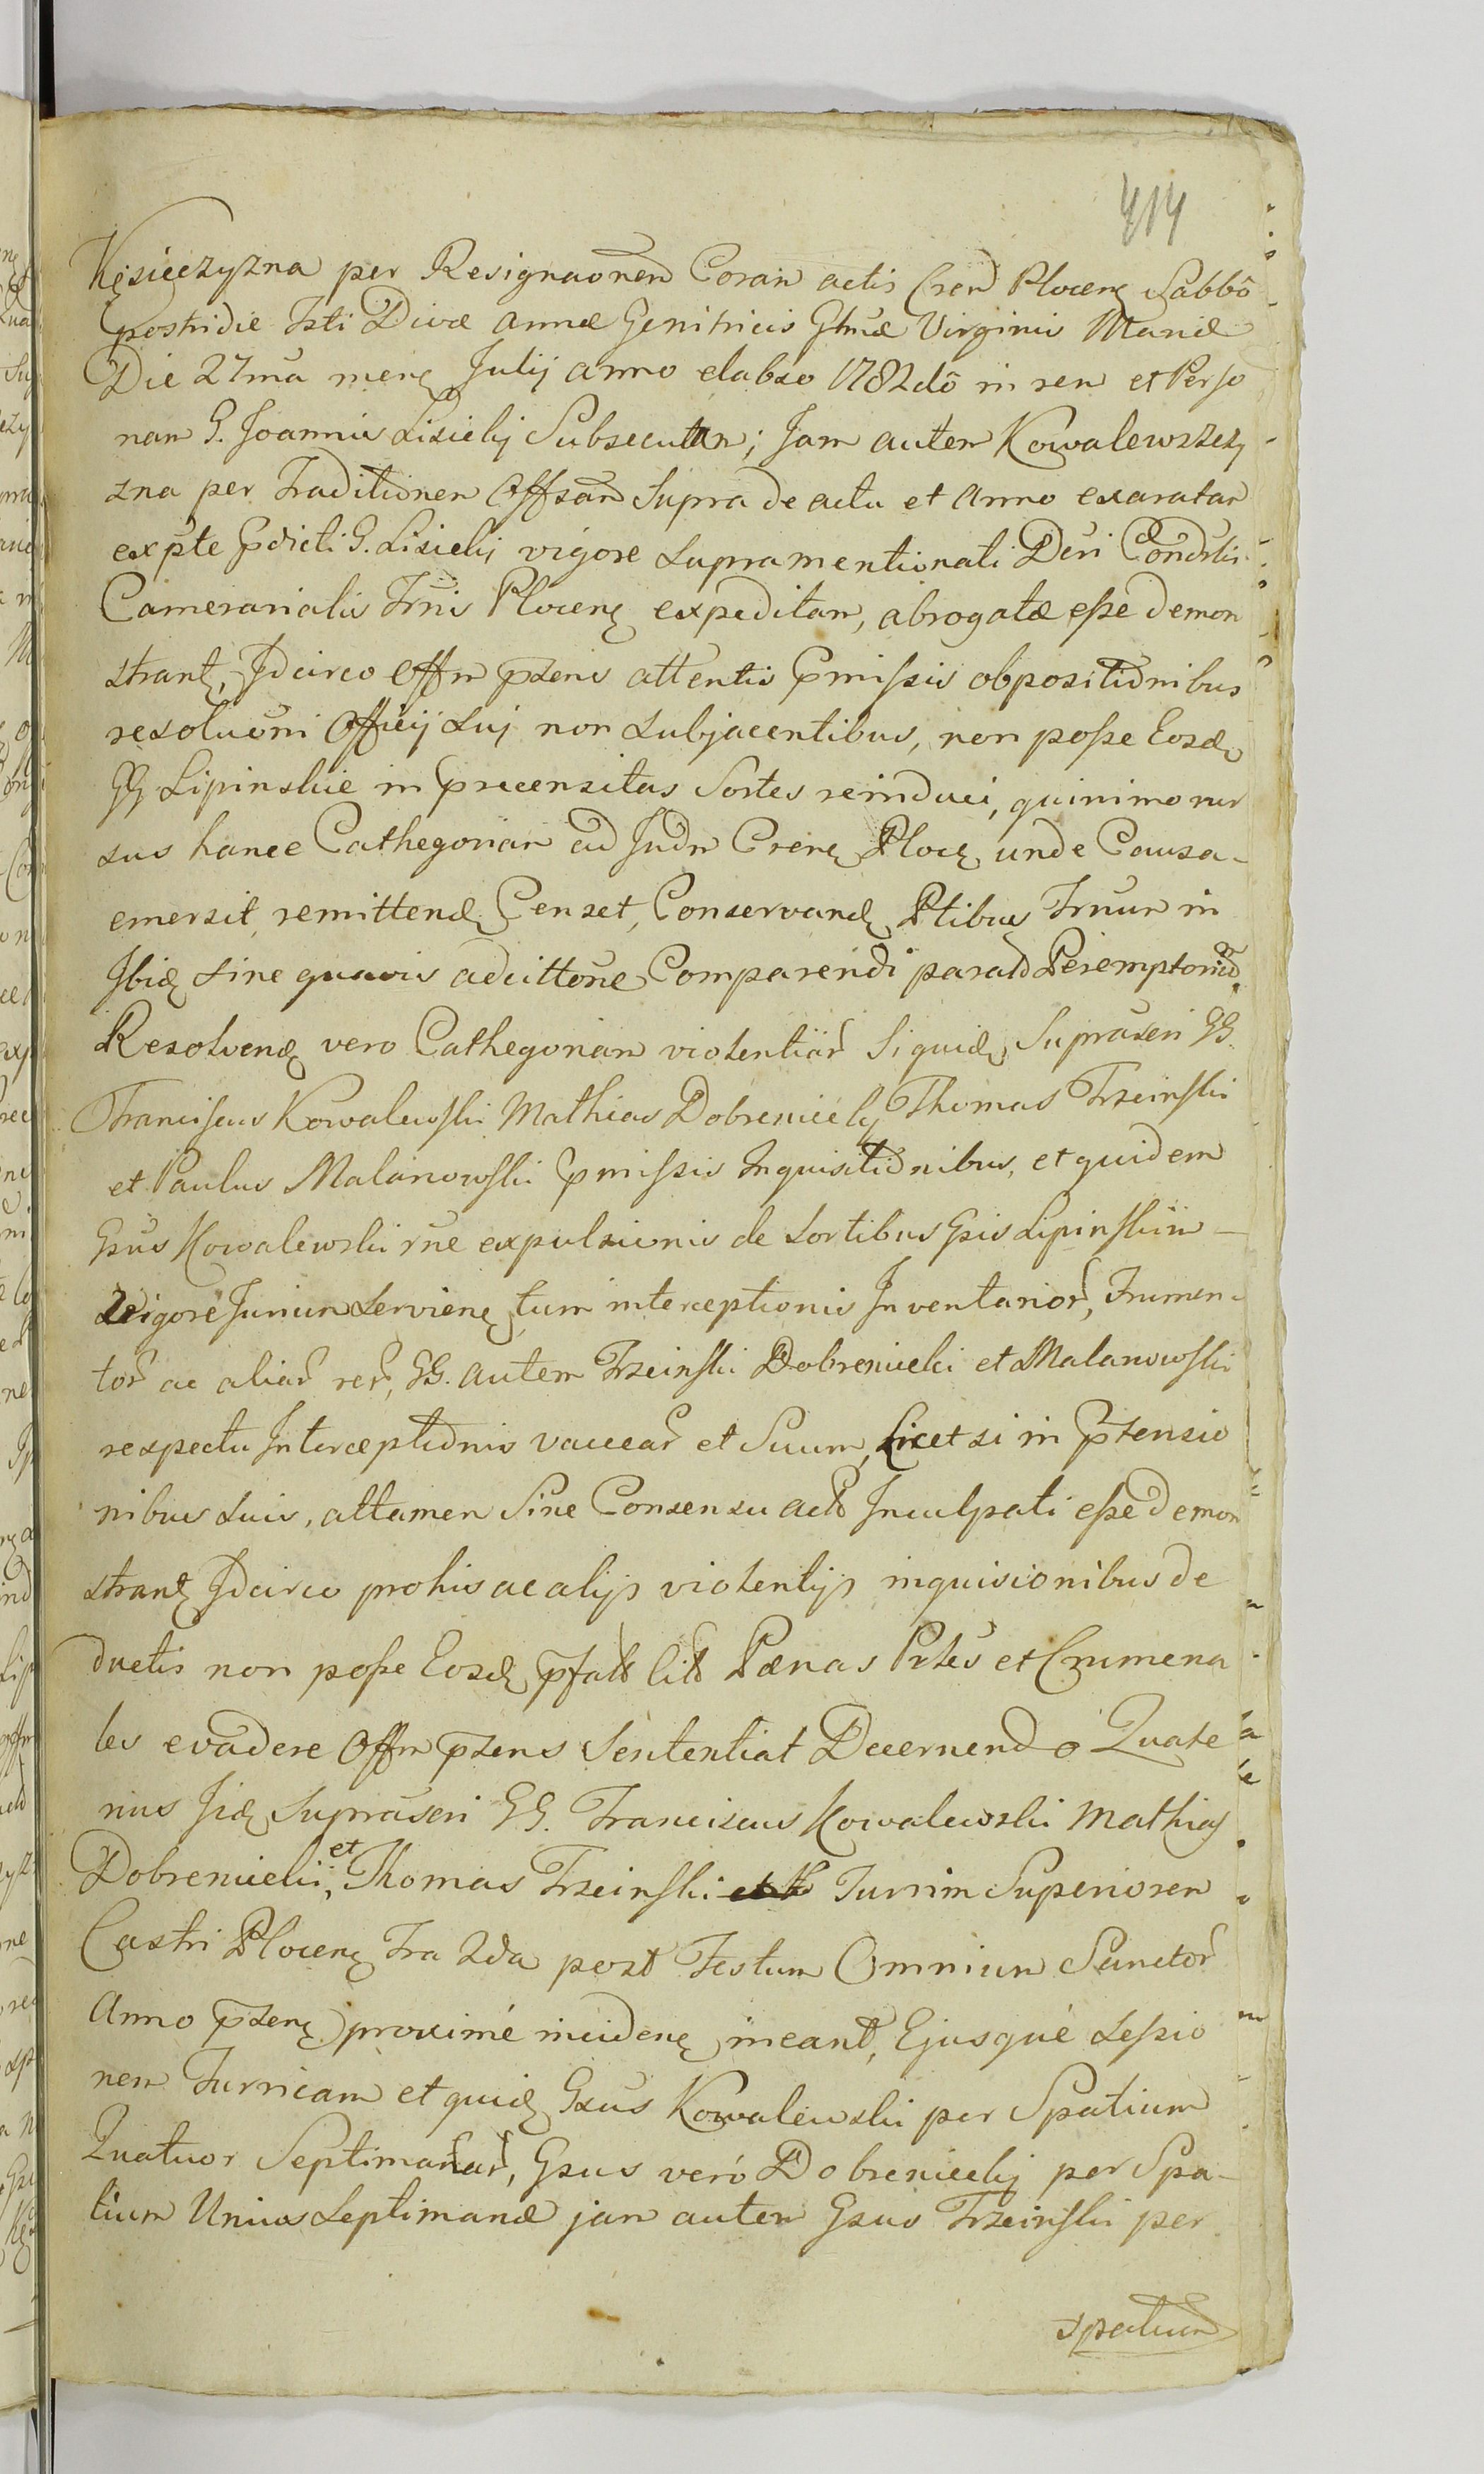 414
Kęsiczyzna per Resignaonem Coram actis Cren Plocen Sabbo
postridie Fsti Divæ Annæ Genitricis Glmæ Virginis Mariæ
Die 27ma mens Julij anno elabso 1782do in rem et Perso
nam G. Joannis Lisicki Subsecutam; Jam autem Kowalewszczy
zna per Traditionem Offsam Supra de actu et Anno exaratam
ex pte pdicti G. Lisicki vigore supramentionati Dcri Condslis
Camerarialis Trnis Plocens expeditam, abrogatæ esse demon
strant, Idcirco Offm pzens attentis pmissis obpositionibus
resoluoni Officij sui non subjacentibus, non posse Eosdem
GG Lipinskie in precensitas Sortes reinduci, quinimo rur
sus hance Cathegoriam ad Judm Crens Ploc, unde Causa
emersit, remittend Censet, Conservand Ptibus Trnum in
Ibid sine quavis adcittone Comparendi parato Peremptorio.
Resolvend vero Cathegoriam violentiar Siquid, Suprascri GG.
Franciscus Kowalewski Mathias Dobrenicki Thomas Trzcinski
et Paulus Malanowski pmissis Inquisitionibus, et quidem
Gsus Kowalewski rne expulsionis de Sortibus Gsis Lipinskim
Vigore Jurium serviens, tum interceptionis Inventarior, Frumen-
tor ac aliar rer, GG. autem Trzcinski Dobrenicki et Malanowski
respectu Interceptionis vaccar et Suum, Licet si in ptensio
nibus suis, attamen Sine Consensu acto Inculpati esse demon
strant Idcirco pro his ac alijs violentijs inquisionibus de
ductis non posse Eosd pfato lito Pænas Pctes et Crumena
les evadere Offm pzens Sententiat Decernendo Quate
nus Jid Suprascri GG. Franciscus Kowalewski Mathias
Dobrenicki, et Thomas Trzcinski Turrim Superiorem
Castri Plocens Fra 2da post Festum Omnium Sanctor
Anno pzens proximé incidens ineant, Ejusqué sessio
nem Turricam et quid Gsus Kowalewski per Spatium
Quatuor Septimanar, Gsus veró Dobrenicki per Spa-
tium Unius Septimanæ jam autem Gsus Trzcinski per
spatium